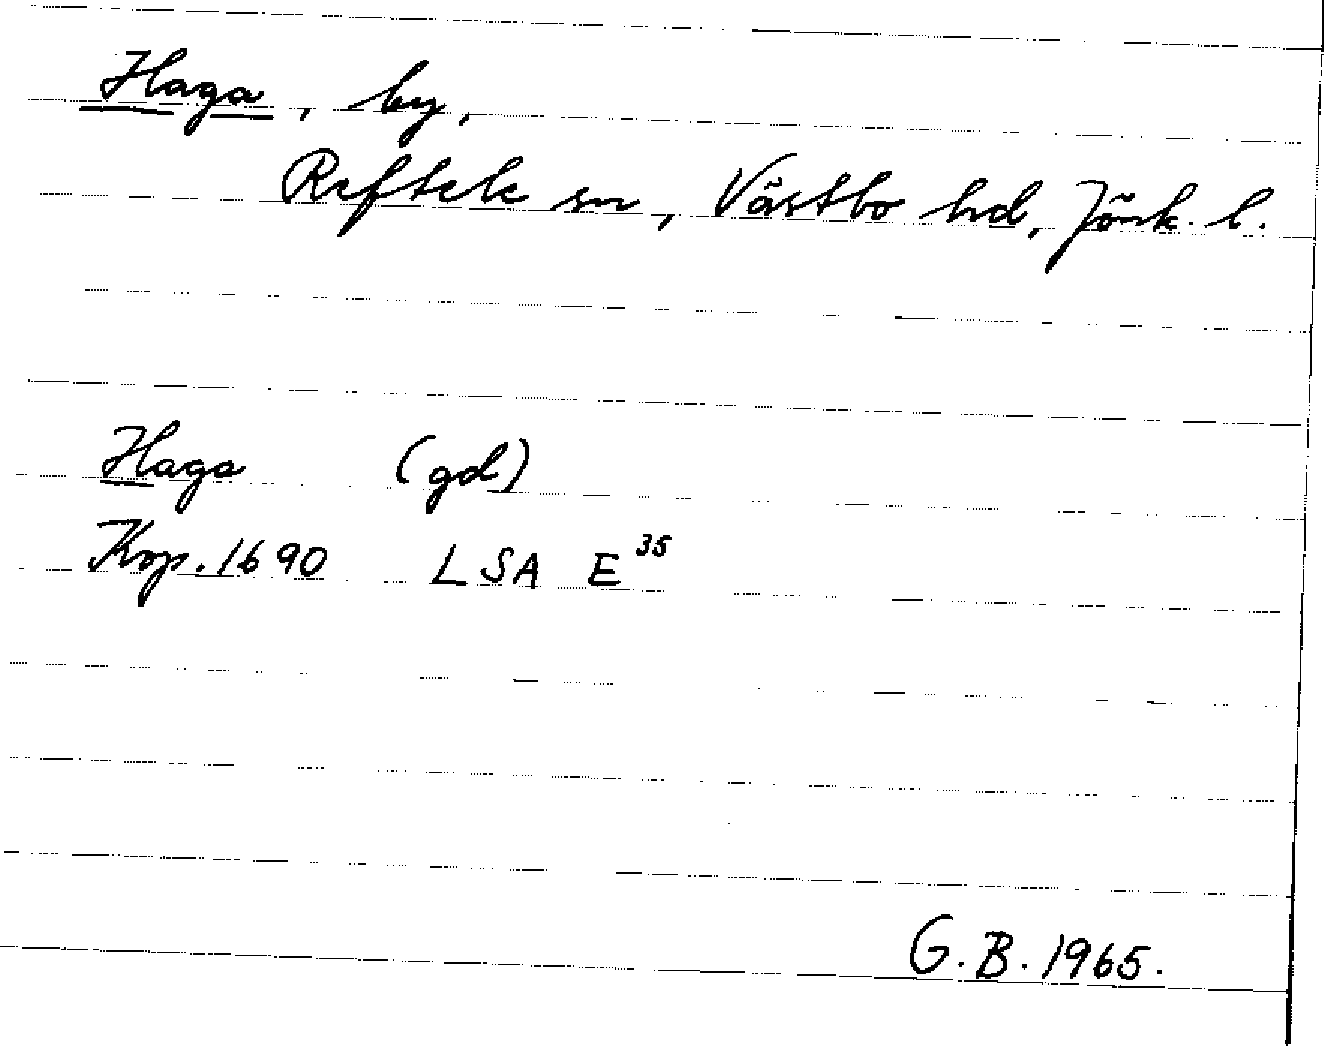 Haga, by,
Reftele sn, Västbo hd, Jönk. l.
Haga (gd)
Kop. 1690 LSA E³⁵
G. B. 1965.